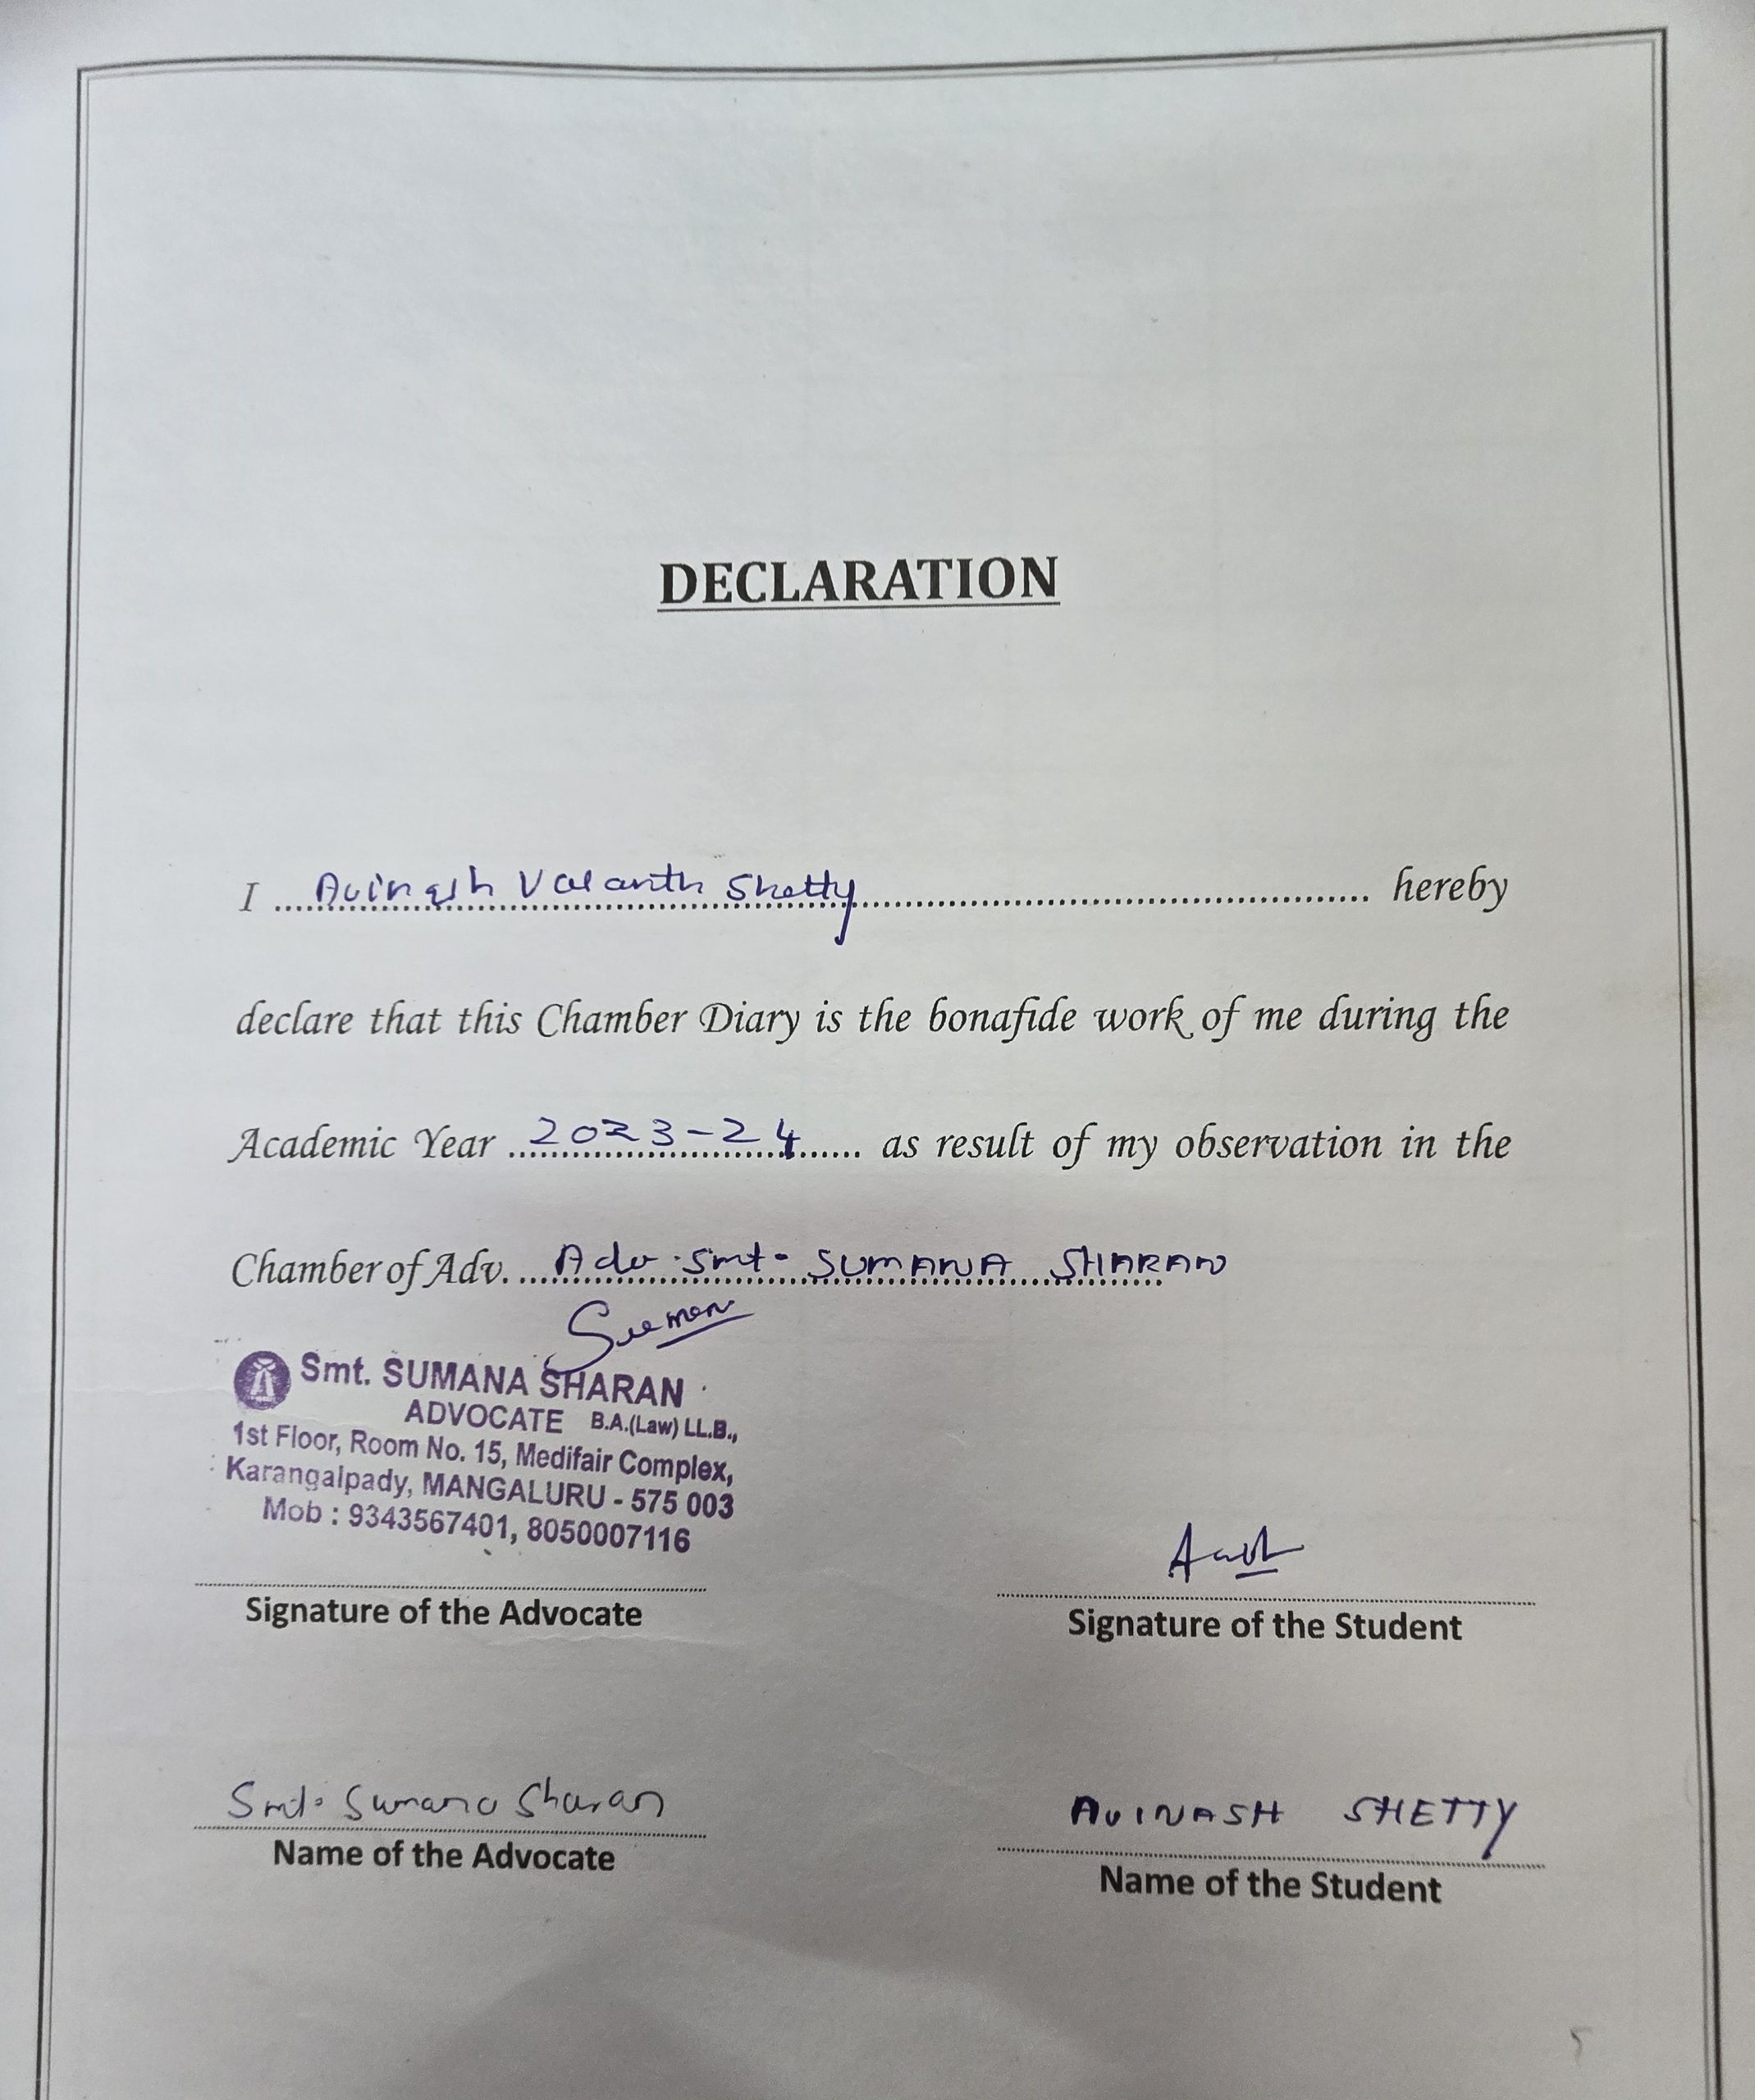 DECLARATION
I Avinash Vasanth Shetty hereby
declare that this Chamber Diary is the bonafide work of me during the
Academic Year 2023-24 as result of my observation in the
Chamber of Adv. Adv. Smt. SUMANA SHARAN
Suman
Smt. SUMANA SHARAN
ADVOCATE B.A.(Law) LL.B.,
1st Floor, Room No. 15, Medifair Complex,
Karangalpady, MANGALURU - 575 003
Mob : 9343567401, 8050007116
Signature of the Advocate
Signature of the Student
Smt. Sumana Sharan
AVINASH SHETTY
Name of the Advocate
Name of the Student